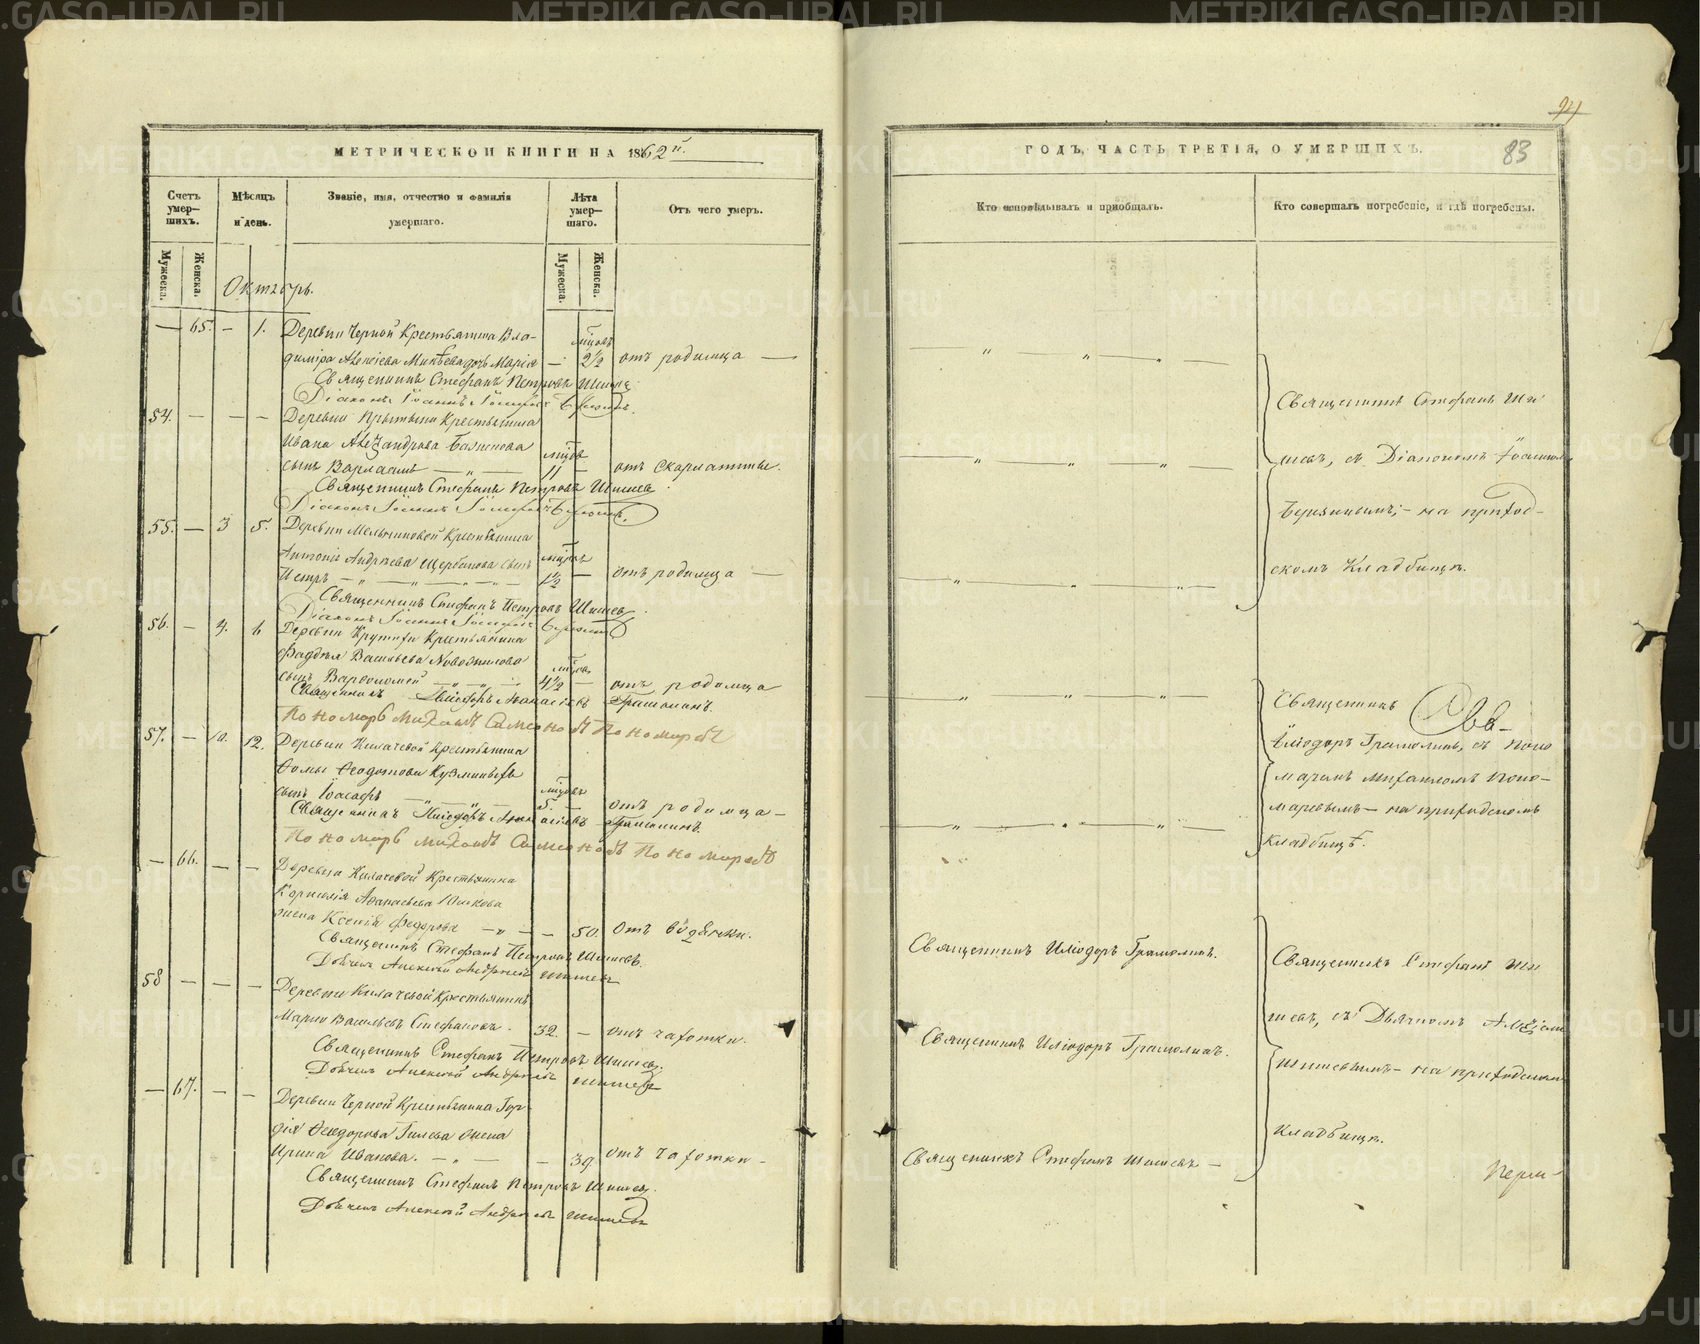 МЕТРИЧЕСКОЙ КНИГИ НА 1862й.
Счетъ умер-шихъ.
Мѣсяцъ и день.
Званіе, имя, отчество и фамилія умершаго.
Лѣта умер-шаго.
Отъ чего умеръ.
Мужеска. Женска.
Мужеска. Женска.
Октябрь.
— 65. — 1. Деревни Черной Крестьянина Вла-
диміра Алексіева Микѣева дочь Марія — мѣцовъ 2½ отъ родимца —
Священникъ Стефанъ Петровъ Шишевъ
Діаконъ Іоаннъ
54. — — — Деревни Крестьянина
Ивана Александрова
сынъ Варлаамъ — „ — мѣцовъ 11 — отъ скарлатины.
Священникъ Стефанъ Петровъ Шишевъ
Діаконъ Іоаннъ
55. — 3 5. Деревни Мельниковой Крестьянина
Антонія Андреева Щербакова сынъ
Петръ — „ — „ — „ — мѣцовъ 1½ — отъ родимца —
Священникъ Стефанъ Петровъ Шишевъ.
Діаконъ Іоаннъ
56. — 4. 6 Деревни Крутихи Крестьянина
Фаддея Васильева Новоселова
сынъ Варѳоломей — мѣцовъ 4½ — отъ родимца
Священникъ Иліодоръ Грамолинъ.
Пономарь Михаилъ Пономаревъ
57. — 10. 12. Деревни Килачевой Крестьянина
Ѳомы Ѳеодотова Кузминыхъ
сынъ Іоасафъ — „ — „ мѣцовъ 5. — отъ родимца —
Священникъ Иліодоръ Грамолинъ.
Пономарь Михаилъ Пономаревъ
— 66. — — Деревни Килачевой Крестьянина
Корнилія Аѳанасьева Юшкова
жена Ксенія Федорова — „ — — 50. отъ водянки.
Священникъ Стефанъ Петровъ Шишевъ.
Дьячекъ Алексій Андреевъ Шишевъ
58 — — — Деревни Килачевой Крестьянинъ
Марко Васильевъ Стефановъ. 32 — отъ чахотки.
Священникъ Стефанъ Петровъ Шишевъ.
Дьячекъ Алексій Андреевъ Шишевъ
— 67. — — Деревни Черной Крестьянина Гор-
дія Ѳеодорова Гилева жена
Ирина Иванова. — „ — — 39 отъ чахотки —
Священникъ Стефанъ Петровъ Шишевъ.
Дьячекъ Алексій Андреевъ Шишевъ
94
83
ГОДЪ, ЧАСТЬ ТРЕТІЯ, О УМЕРШИХЪ.
Кто исповѣдывалъ и пріобщалъ.
Кто совершалъ погребеніе, и гдѣ погребены.
Священникъ Стефанъ Ши-
шевъ, съ Діакономъ Іоанномъ
— на приход-
скомъ Кладбищѣ.
Священникъ
Иліодоръ Грамолинъ, съ поно-
маремъ Михаиломъ Поно-
маревымъ — на приходскомъ
Кладбищѣ.
Священникъ Иліодоръ Грамолинъ.
Священникъ Иліодоръ Грамолинъ.
Священникъ Стефанъ Шишевъ —
Священникъ Стефанъ Ши-
шевъ, съ Дьячкомъ Алексіемъ
Шишевымъ — на приходскомъ
Кладбищѣ.
METRIKI.GASO-URAL.RU